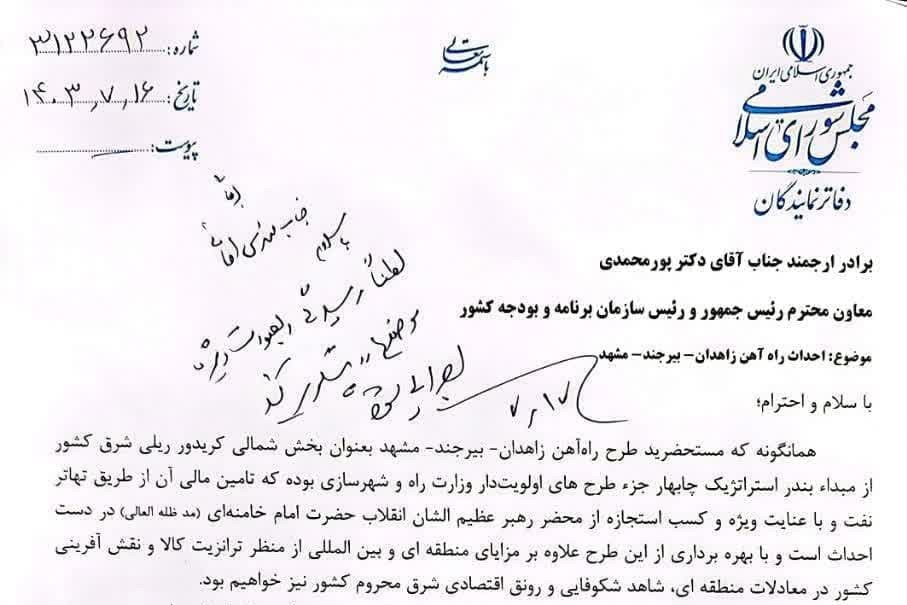 باسمه تعالی
جمهوری اسلامی ایران
مجلس شورای اسلامی
دفاتر نمایندگان
شماره: ۳۱۲۲۶۹۲
تاریخ: ۱۴۰۳٫۷٫۱۶
پیوست:
با سلام
لطفاً رسیدگی
۷٫۱۷
برادر ارجمند جناب آقای دکتر پورمحمدی
معاون محترم رئیس جمهور و رئیس سازمان برنامه و بودجه کشور
موضوع: احداث راه آهن زاهدان- بیرجند- مشهد
با سلام و احترام؛
همانگونه که مستحضرید طرح راه‌آهن زاهدان- بیرجند- مشهد بعنوان بخش شمالی کریدور ریلی شرق کشور
از مبداء بندر استراتژیک چابهار جزء طرح های اولویت‌دار وزارت راه و شهرسازی بوده که تامین مالی آن از طریق تهاتر
نفت و با عنایت ویژه و کسب استجازه از محضر رهبر عظیم الشان انقلاب حضرت امام خامنه‌ای (مد ظله العالی) در دست
احداث است و با بهره برداری از این طرح علاوه بر مزایای منطقه ای و بین المللی از منظر ترانزیت کالا و نقش آفرینی
کشور در معادلات منطقه ای، شاهد شکوفایی و رونق اقتصادی شرق محروم کشور نیز خواهیم بود.